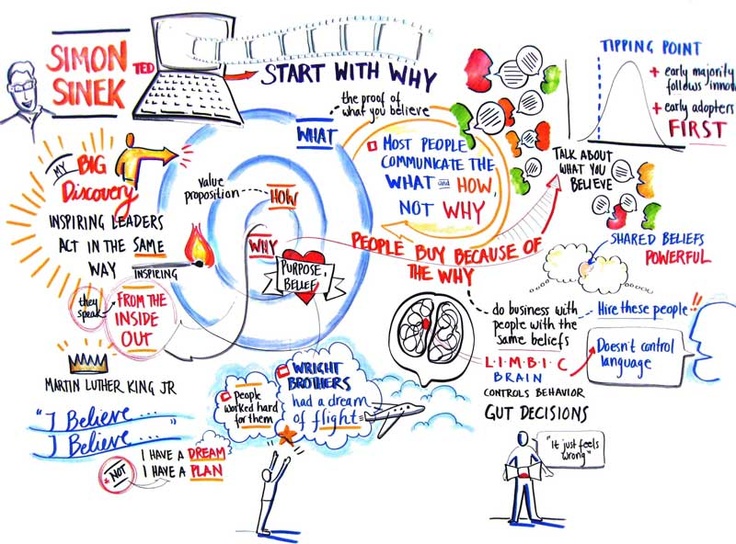 SIMON
SINEK
TED
START WITH WHY
the proof of
what you believe
WHAT
Value
proposition
HOW
WHY
PURPOSE,
BELIEF
MOST PEOPLE
COMMUNICATE THE
WHAT and HOW,
NOT WHY
PEOPLE BUY BECAUSE OF
THE WHY
TIPPING POINT
+ early majority
follows innov
+ early adopters
FIRST
TALK ABOUT
WHAT YOU
BELIEVE
SHARED BELIEFS
POWERFUL
MY BIG
Discovery
INSPIRING LEADERS
ACT IN THE SAME
WAY
INSPIRING
they
speak
FROM THE
INSIDE
OUT
do business with
people with the
same beliefs
Hire these people!!
L·I·M·B·I·C
BRAIN
CONTROLS BEHAVIOR
GUT DECISIONS
Doesn't control
language
"It just feels
wrong"
MARTIN LUTHER KING JR
"I Believe...
I Believe..."
I HAVE A DREAM
NOT I HAVE A PLAN
People
worked hard
for them
WRIGHT
BROTHERS
had a dream
of flight